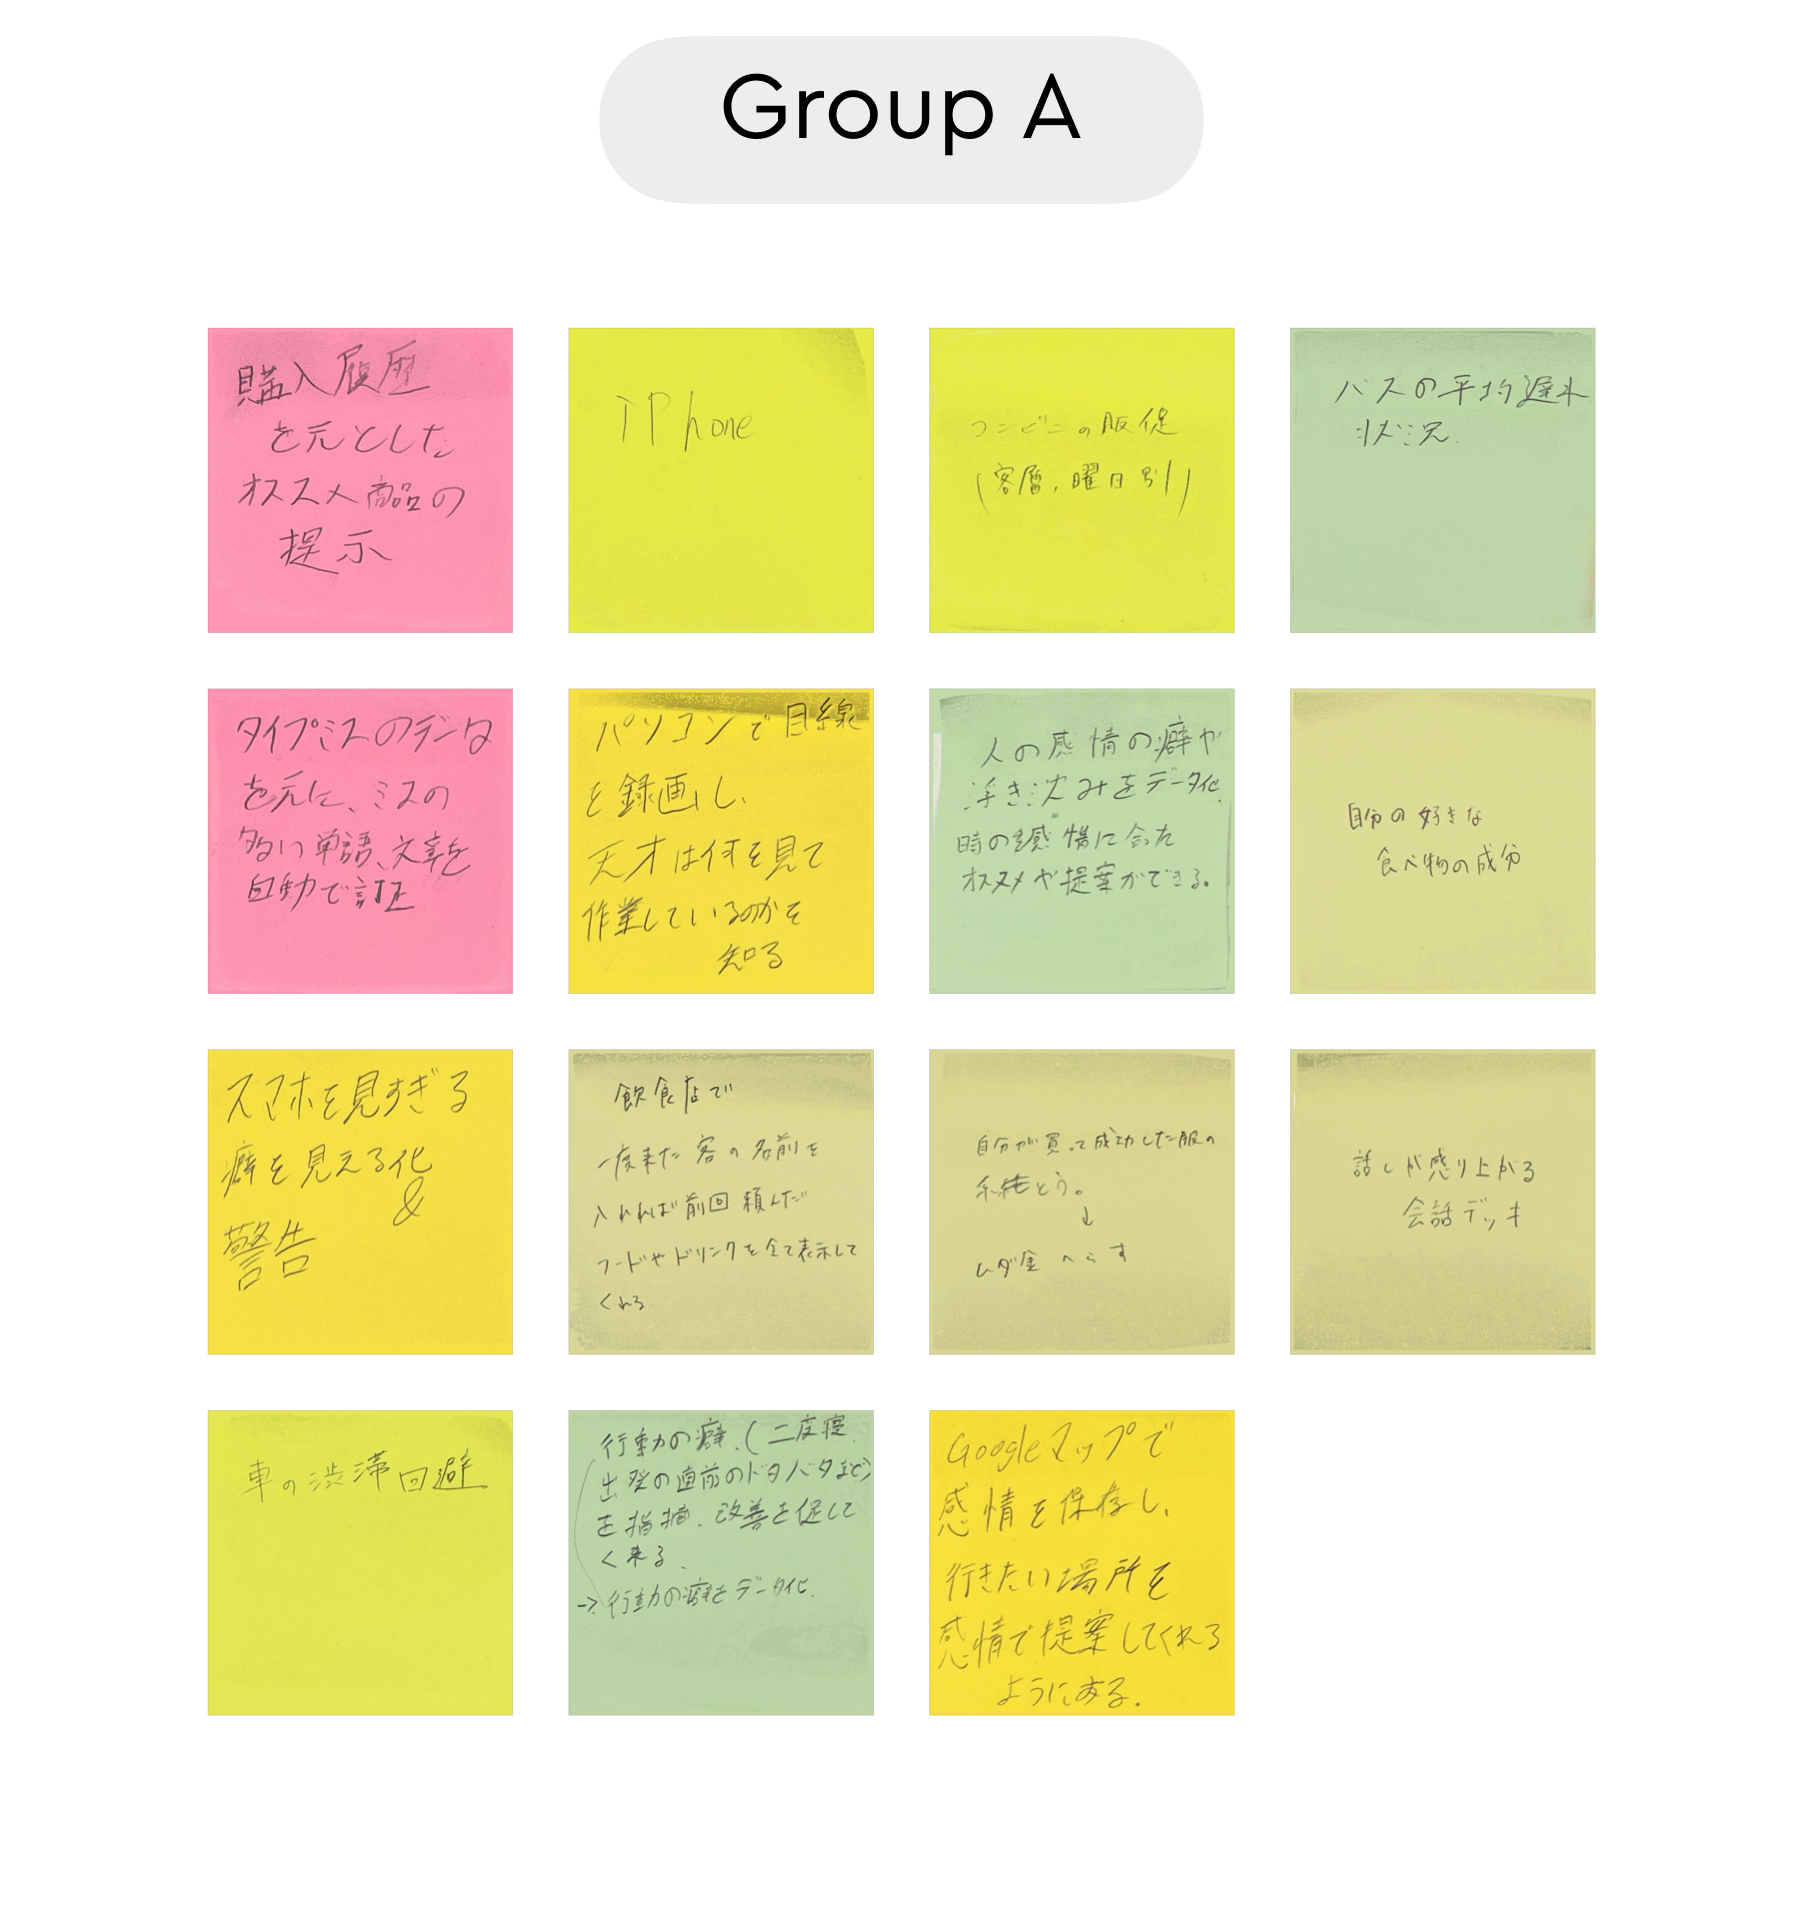 Group A
購入履歴
を元とした
オススメ商品の
提示
iPhone
コンビニの販促
(客層,曜日別)
バスの平均遅れ
状況
タイプミスのデータ
を元に、ミスの
多い単語、文章を
自動で訂正
パソコンで目線
を録画し、
天才は何を見て
作業しているのかを
知る
人の感情の癖や
浮き沈みをデータ化、
時の感情に合った
オススメや提案ができる。
自分の好きな
食べ物の成分
スマホを見すぎる
癖を見える化
&
警告
飲食店で
一度来た客の名前を
入れれば前回頼んだ
フードやドリンクを全て表示して
くれる
自分が買って成功した服の
系統とう。
↓
ムダ金へらす
話しが盛り上がる
会話デッキ
車の渋滞回避
行動の癖、(二度寝、
出発の直前のドタバタなど)
を指摘、改善を促して
く来る、
→行動の癖をデータ化、
Googleマップで
感情を保存し、
行きたい場所を
感情で提案してくれる
ようにする。